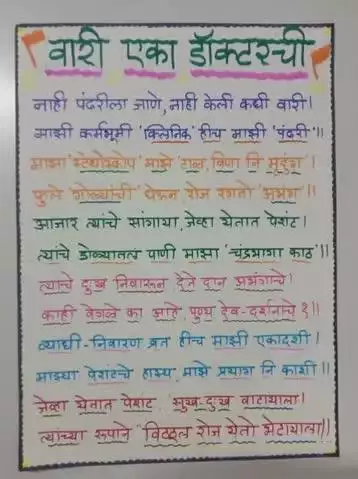 वारी एका डॉक्टरची
नाही पंढरीला जाणे, नाही केली कधी वारी।
माझी कर्मभूमी 'क्लिनिक' हीच माझी 'पंढरी'॥
माझा 'स्टेथोस्कोप' माझे 'टाळ, विणा नि मृदुंग'।
फुले गोळ्यांची घेऊन रोज रंगतो 'अभंग'॥
आजार त्यांचे सांगाया, जेव्हा येतात पेशंट।
त्यांचे डोळ्यातलं पाणी माझा 'चंद्रभागा काठ'॥
त्यांचे दुःख निवारून देते दान अभंगाचे।
काही वेगळे का आहे, पुण्य देव-दर्शनाचे?॥
व्याधी-निवारण व्रत हीच माझी एकादशी।
माझ्या पेशंटचे हास्य, माझे प्रयाग नि काशी॥
जेव्हा येतात पेशंट, सुख-दुःख वाटायाला।
त्यांच्या रूपाने "विठ्ठल रोज येतो भेटायाला॥